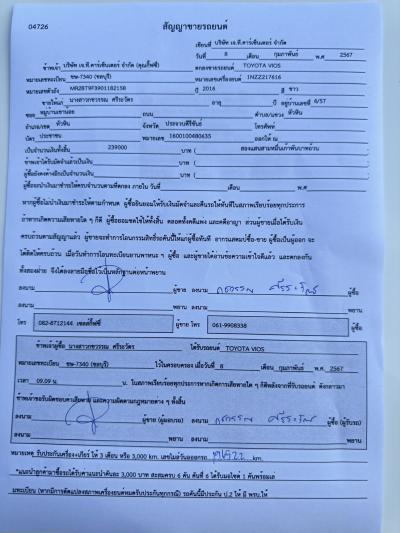 04726
สัญญาขายรถยนต์
เขียนที่ บริษัท เจ.ที.คาร์เซ็นเตอร์ จำกัด
วันที่ 8 เดือน กุมภาพันธ์ พ.ศ 2567
ข้าพเจ้า บริษัท เจ.ที.คาร์เซ็นเตอร์ จำกัด (คุณกี้ฟซี่) ตกลงขายรถยนต์ TOYOTA VIOS
หมายเลขทะเบียน ขษ-7340 (ชลบุรี) หมายเลขเครื่องยนต์ 1NZZ217616
หมายเลขตัวถัง MR2BT9F3901182158 ปี 2016 สี ขาว
ขายให้แก่ นางสาวกชวรรณ ศรีระวัตร อายุ ปี อยู่บ้านเลขที่ 6/57
ซอย หมู่บ้านเขาน้อย ถนน ตำบล/แขวง หัวหิน
อำเภอ/เขต หัวหิน จังหวัด ประจวบคีรีขันธ์ โทรศัพท์
บัตร ประชาชน หมายเลข 1600100680635 ออกให้ ณ
เป็นจำนวนเงินทั้งสิ้น 239000 บาท ( สองแสนสามหมื่นเก้าพันบาทถ้วน
ข้าพเจ้าได้รับมัดจำแล้วเป็นเงิน บาท (
ผู้ซื้อยังคงค้างอีกเป็นจำนวนเงิน บาท (
ผู้ซื้อจะนำเงินมาชำระให้ครบจำนวนตามที่ตกลง ภายใน วันที่ เดือน พ.ศ
หากผู้ซื้อไม่นำเงินมาชำระให้ตามกำหนด ผู้ซื้อยินยอมให้รับเงินมัดจำและคืนรถให้ทันทีในสภาพเรียบร้อยทุกประการ
ถ้าหากเกิดความเสียหายใด ๆ ก็ดี ผู้ซื้อยอมชดใช้ให้ทั้งสิ้น ตลอดทั้งคดีแพ่ง และคดีอาญา ส่วนผู้ขายเมื่อได้รับเงิน
ครบถ้วนตามสัญญาแล้ว ผู้ขายจะทำการโอนกรรมสิทธิ์รถคันนี้ให้แก่ผู้ซื้อทันที อากรแสตมป์ซื้อ-ขาย ผู้ซื้อเป็นผู้ออก จะ
ได้ติดให้ครบถ้วน เมื่อวันทำการโอนทะเบียนยานพาหนะ ฯ ผู้ซื้อ และผู้ขายได้อ่านข้อความเข้าใจดีแล้ว และตกลงกัน
ทั้งสองฝ่าย จึงได้ลงลายมือชื่อไว้เป็นหลักฐานต่อหน้าพยาน
ลงนาม ผู้ขาย ลงนาม กชวรรณ ศรีระวัตร ผู้ซื้อ
ลงนาม พยาน ลงนาม พยาน
โทร 082-8712144 เซลล์กี้ฟซี่ ผู้ขาย โทร 061-9908338 ผู้ซื้อ
ข้าพเจ้าผู้ซื้อ นางสาวกชวรรณ ศรีระวัตร ได้รับรถยนต์ TOYOTA VIOS
หมายเลขทะเบียน ขษ-7340 (ชลบุรี) ไว้ในครอบครอง เมื่อวันที่ 8 เดือน กุมภาพันธ์ พ.ศ 2567
เวลา 09.09 น. น. ในสภาพเรียบร้อยทุกประการหากเกิดการเสียหายใด ๆ ก็ดีหลังจากที่รับรถยนต์ ดังกล่าวมา
ข้าพเจ้าขอรับผิดชอบความเสียหาย และความผิดตามกฎหมายต่าง ๆ ทั้งสิ้น
ลงนาม ผู้ขาย (ผู้มอบรถ) ลงนาม กชวรรณ ศรีระวัตร ผู้ซื้อ (ผู้รับรถ)
ลงนาม พยาน ลงนาม พยาน
หมายเหตุ รับประกันเครื่อง+เกียร์ ให้ 3 เดือน หรือ 3,000 km. เลขไมล์วันออกรถ km.
*แนะนำลูกค้ามาซื้อรถได้รับค่าแนะนำคันละ 3,000 บาท สะสมครบ 6 คัน คันที่ 6 ได้รับมอไซค์ 1 คันพร้อมเล่
มทะเบียน (หากมีการดัดแปลงสภาพเครื่องยนต์หมดรับประกันทุกกรณี) รถคันนี้มีประกัน ป.2 ให้ มี พรบ.ให้